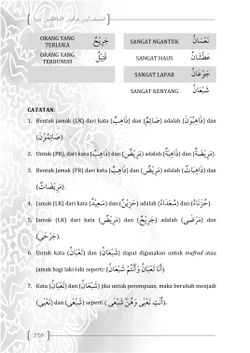 ORANG YANG TERLUKA جَرِيْحٌ SANGAT NGANTUK نَعْسَانُ
ORANG YANG TERBUNUH قَتِيْلٌ SANGAT HAUS عَطْشَانُ
SANGAT LAPAR جَوْعَانُ
SANGAT KENYANG شَبْعَانُ
CATATAN:
1. Bentuk jamak (LK) dari kata (ذَاهِبٌ) dan (صَائِمٌ) adalah (ذَاهِبُوْنَ) dan
(صَائِمُوْنَ).
2. Untuk (PR), dari kata (ذَاهِبٌ) dan (مَرِيْضٌ) adalah (ذَاهِبَةٌ) dan (مَرِيْضَةٌ).
3. Bentuk Jamak (PR) dari kata (ذَاهِبٌ) dan (مَرِيْضٌ) adalah (ذَاهِبَاتٌ) dan
(مَرِيْضَاتٌ).
4. Jamak (LK) dari kata (سَعِيْدٌ) dan (حَزِيْنٌ) adalah (سُعَدَاءُ) dan (حُزَنَاءُ).
5. Jamak (LK) dari kata (مَرِيْضٌ) dan (جَرِيْحٌ) adalah (مَرْضَى) dan
(جَرْحَى).
6. Untuk kata (تَعْبَانُ) dan (شَبْعَانُ) dapat digunakan untuk mufrod atau
jamak bagi laki-laki seperti: (أَنَا تَعْبَانُ وَأَنْتُمْ شَبْعَانُ).
7. Kata (تَعْبَانُ) dan (شَبْعَانُ) jika untuk perempuan, maka berubah menjadi
(تَعْبَى) dan (شَبْعَى) seperti (أَنْتِ تَعْبَى وَهُنَّ شَبْعَى).